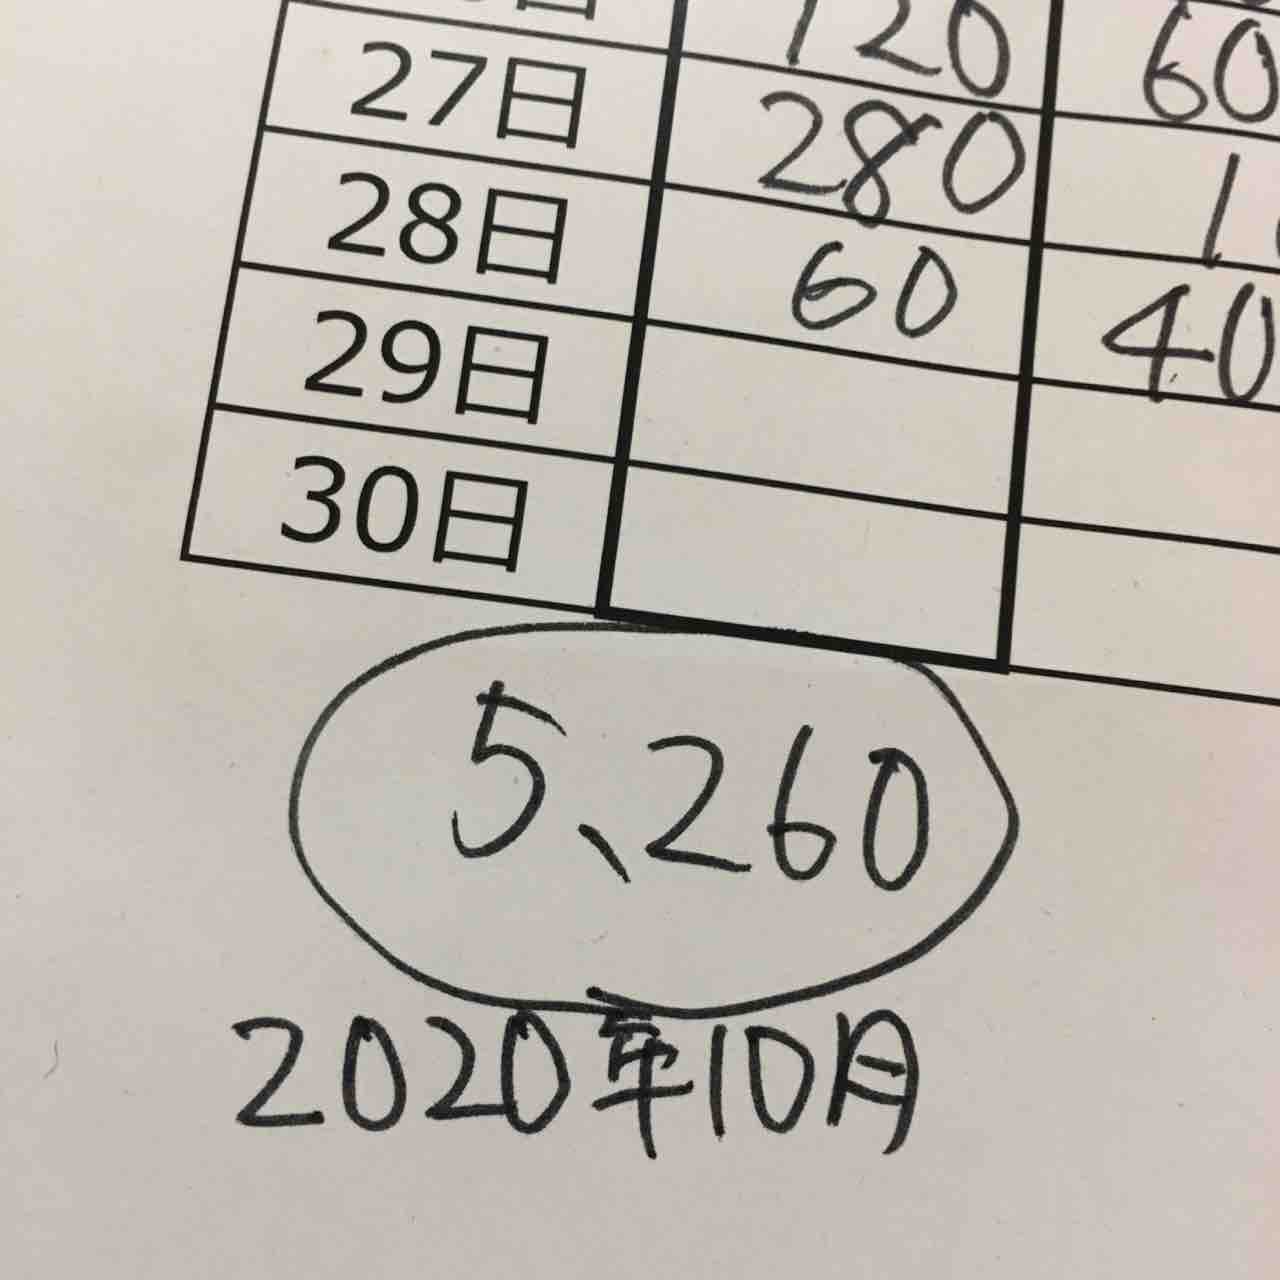 120 60
27日 280
28日 60 40
29日
30日
5、260
2020年10月